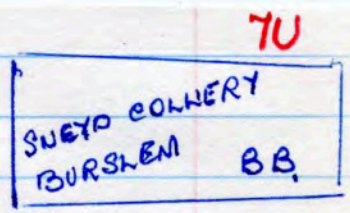 7U
SNEYD COLLIERY
BURSLEM B.B.